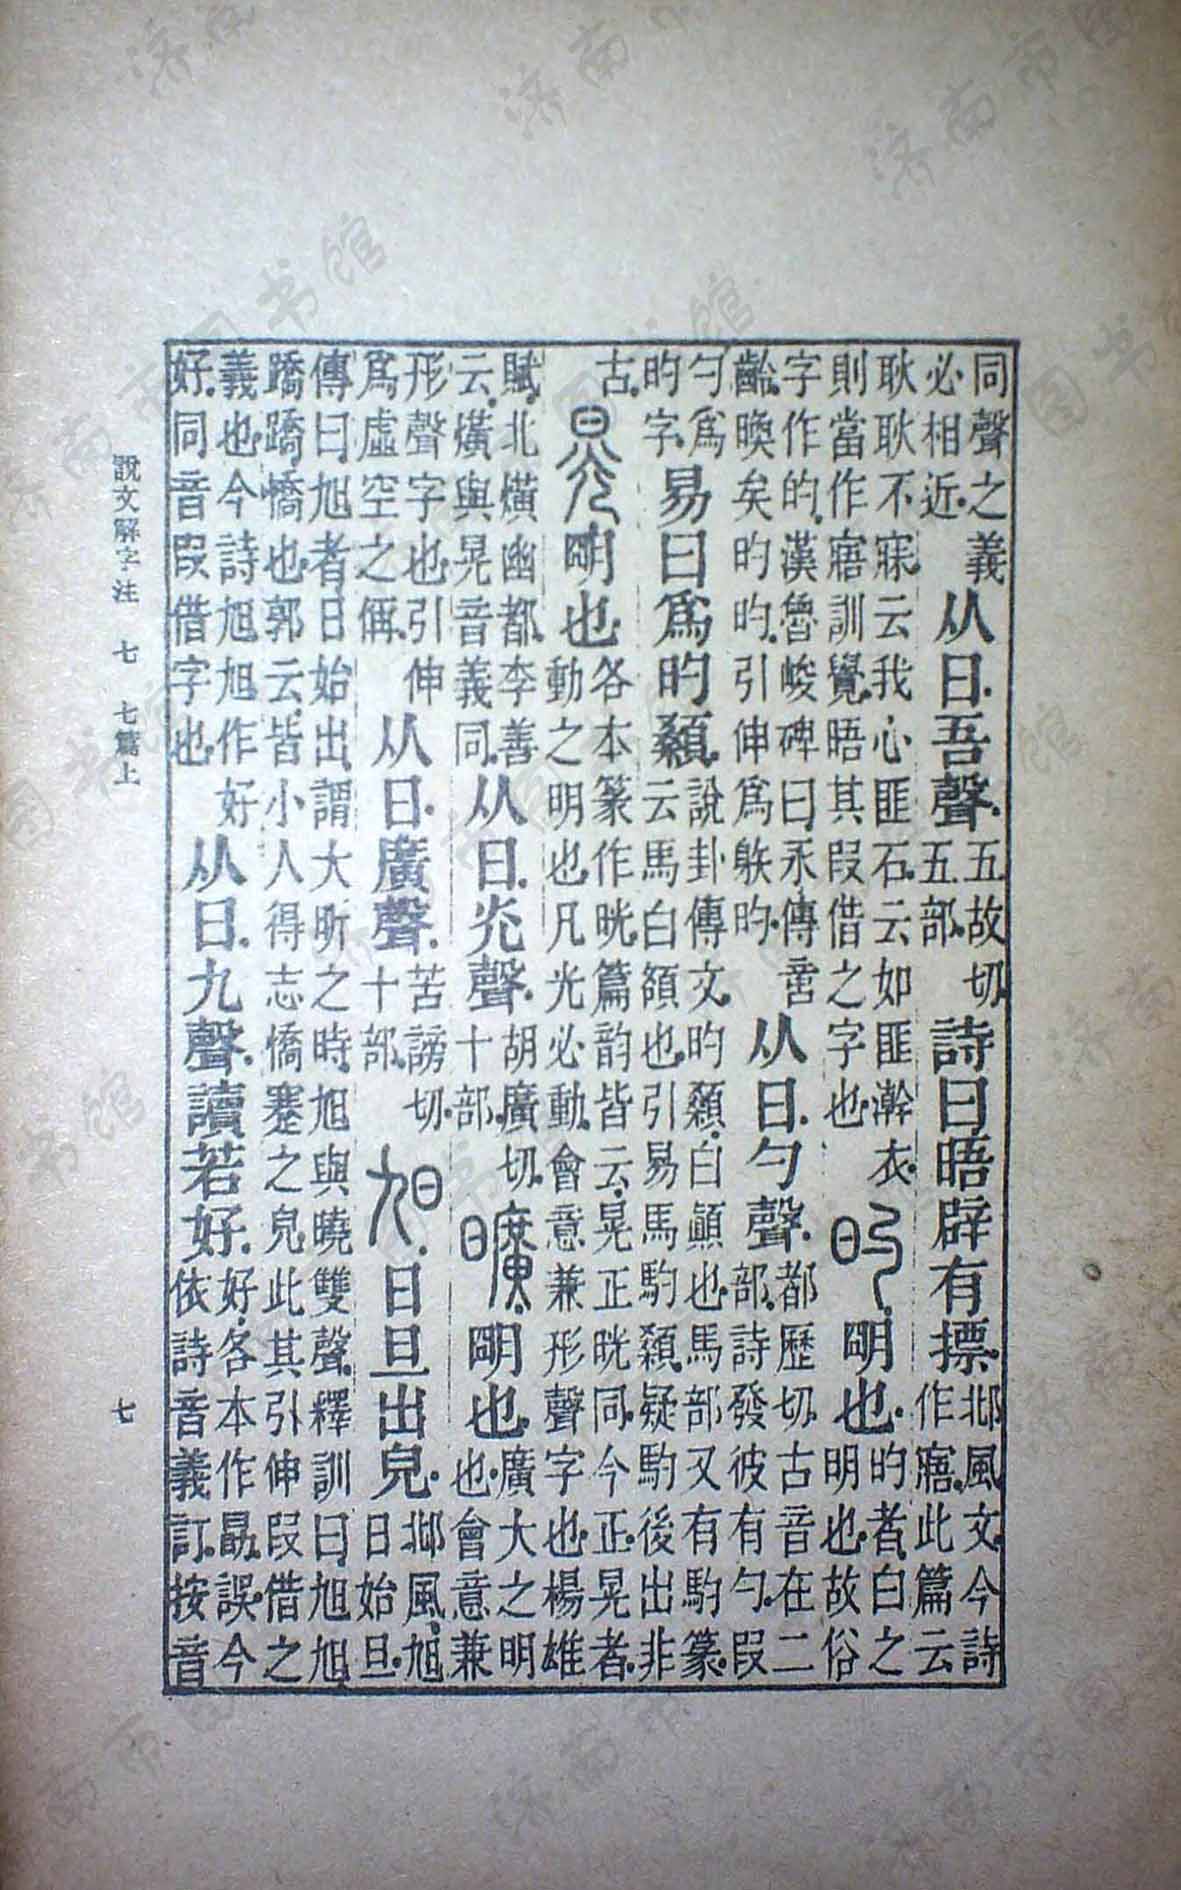 同聲之義必相近从日吾聲五故切五部詩曰晤辟有摽邶風文今詩作寤此篇云
耿耿不寐云我心匪石云如匪澣衣則當作寤訓覺晤其叚借之字也旳明也旳者白之明也故俗
字作的漢魯峻碑曰永傳啻齡㬇矣旳旳引伸爲躲旳从日勺聲都歷切古音在二部詩發彼有勺叚
勺爲旳字易曰爲旳顙說卦傳文旳顙白顚也馬部又有馰篆云馬白頟也引易馬馰顙疑馰後出非
古晃明也各本篆作晄篇韵皆云晃正晄同今正晃者動之明也凡光必動會意兼形聲字也楊雄
賦北爌幽都李善云爌與晃音義同从日光聲胡廣切十部曠明也廣大之明也會意兼
形聲字也引伸爲虛空之偁从日廣聲苦謗切十部旭日旦出皃邶風旭日始旦
傳曰旭者日始出謂大昕之時旭與曉雙聲釋訓曰旭旭蹻蹻憍也郭云皆小人得志憍蹇之皃此其引伸叚借之
義也今詩旭旭作好好同音叚借字也从日九聲讀若好好各本作勗誤今依詩音義訂按音
說文解字注 七 七篇上 七
济南市图书馆